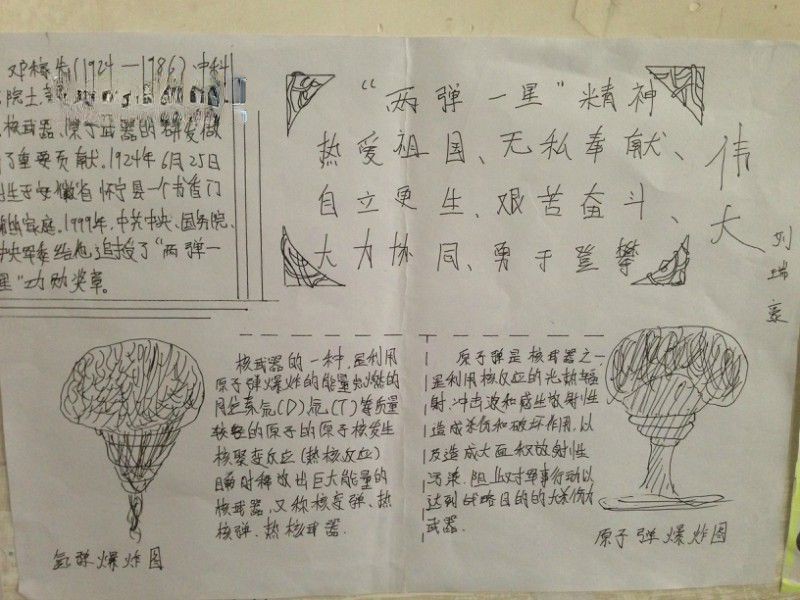 邓稼先(1924—1986)中科
院士
核武器、原子武器的研发做
了重要贡献。1924年6月25日
出生于安徽省怀宁县一个书香门
家庭。1999年,中共中央、国务院、
中央军委给他追授了"两弹一
星"功勋奖章。
"两弹一星"精神
热爱祖国、无私奉献、
自立更生、艰苦奋斗、
大力协同、勇于登攀
伟大
核武器的一种,是利用
原子弹爆炸的能量点燃的
同位素氘(D)氚(T)等质量
较轻的原子的原子核发生
核聚变反应(热核反应)
瞬时释放出巨大能量的
核武器,又称核聚弹、热
核弹、热核武器.
氢弹爆炸图
原子弹是核武器之一
是利用核反应的光热辐
射、冲击波和感生放射性
造成杀伤和破坏作用,以
及造成大面积放射性
污染,阻止对军事行动以
达到战略目的的大杀伤力
武器.
原子弹爆炸图